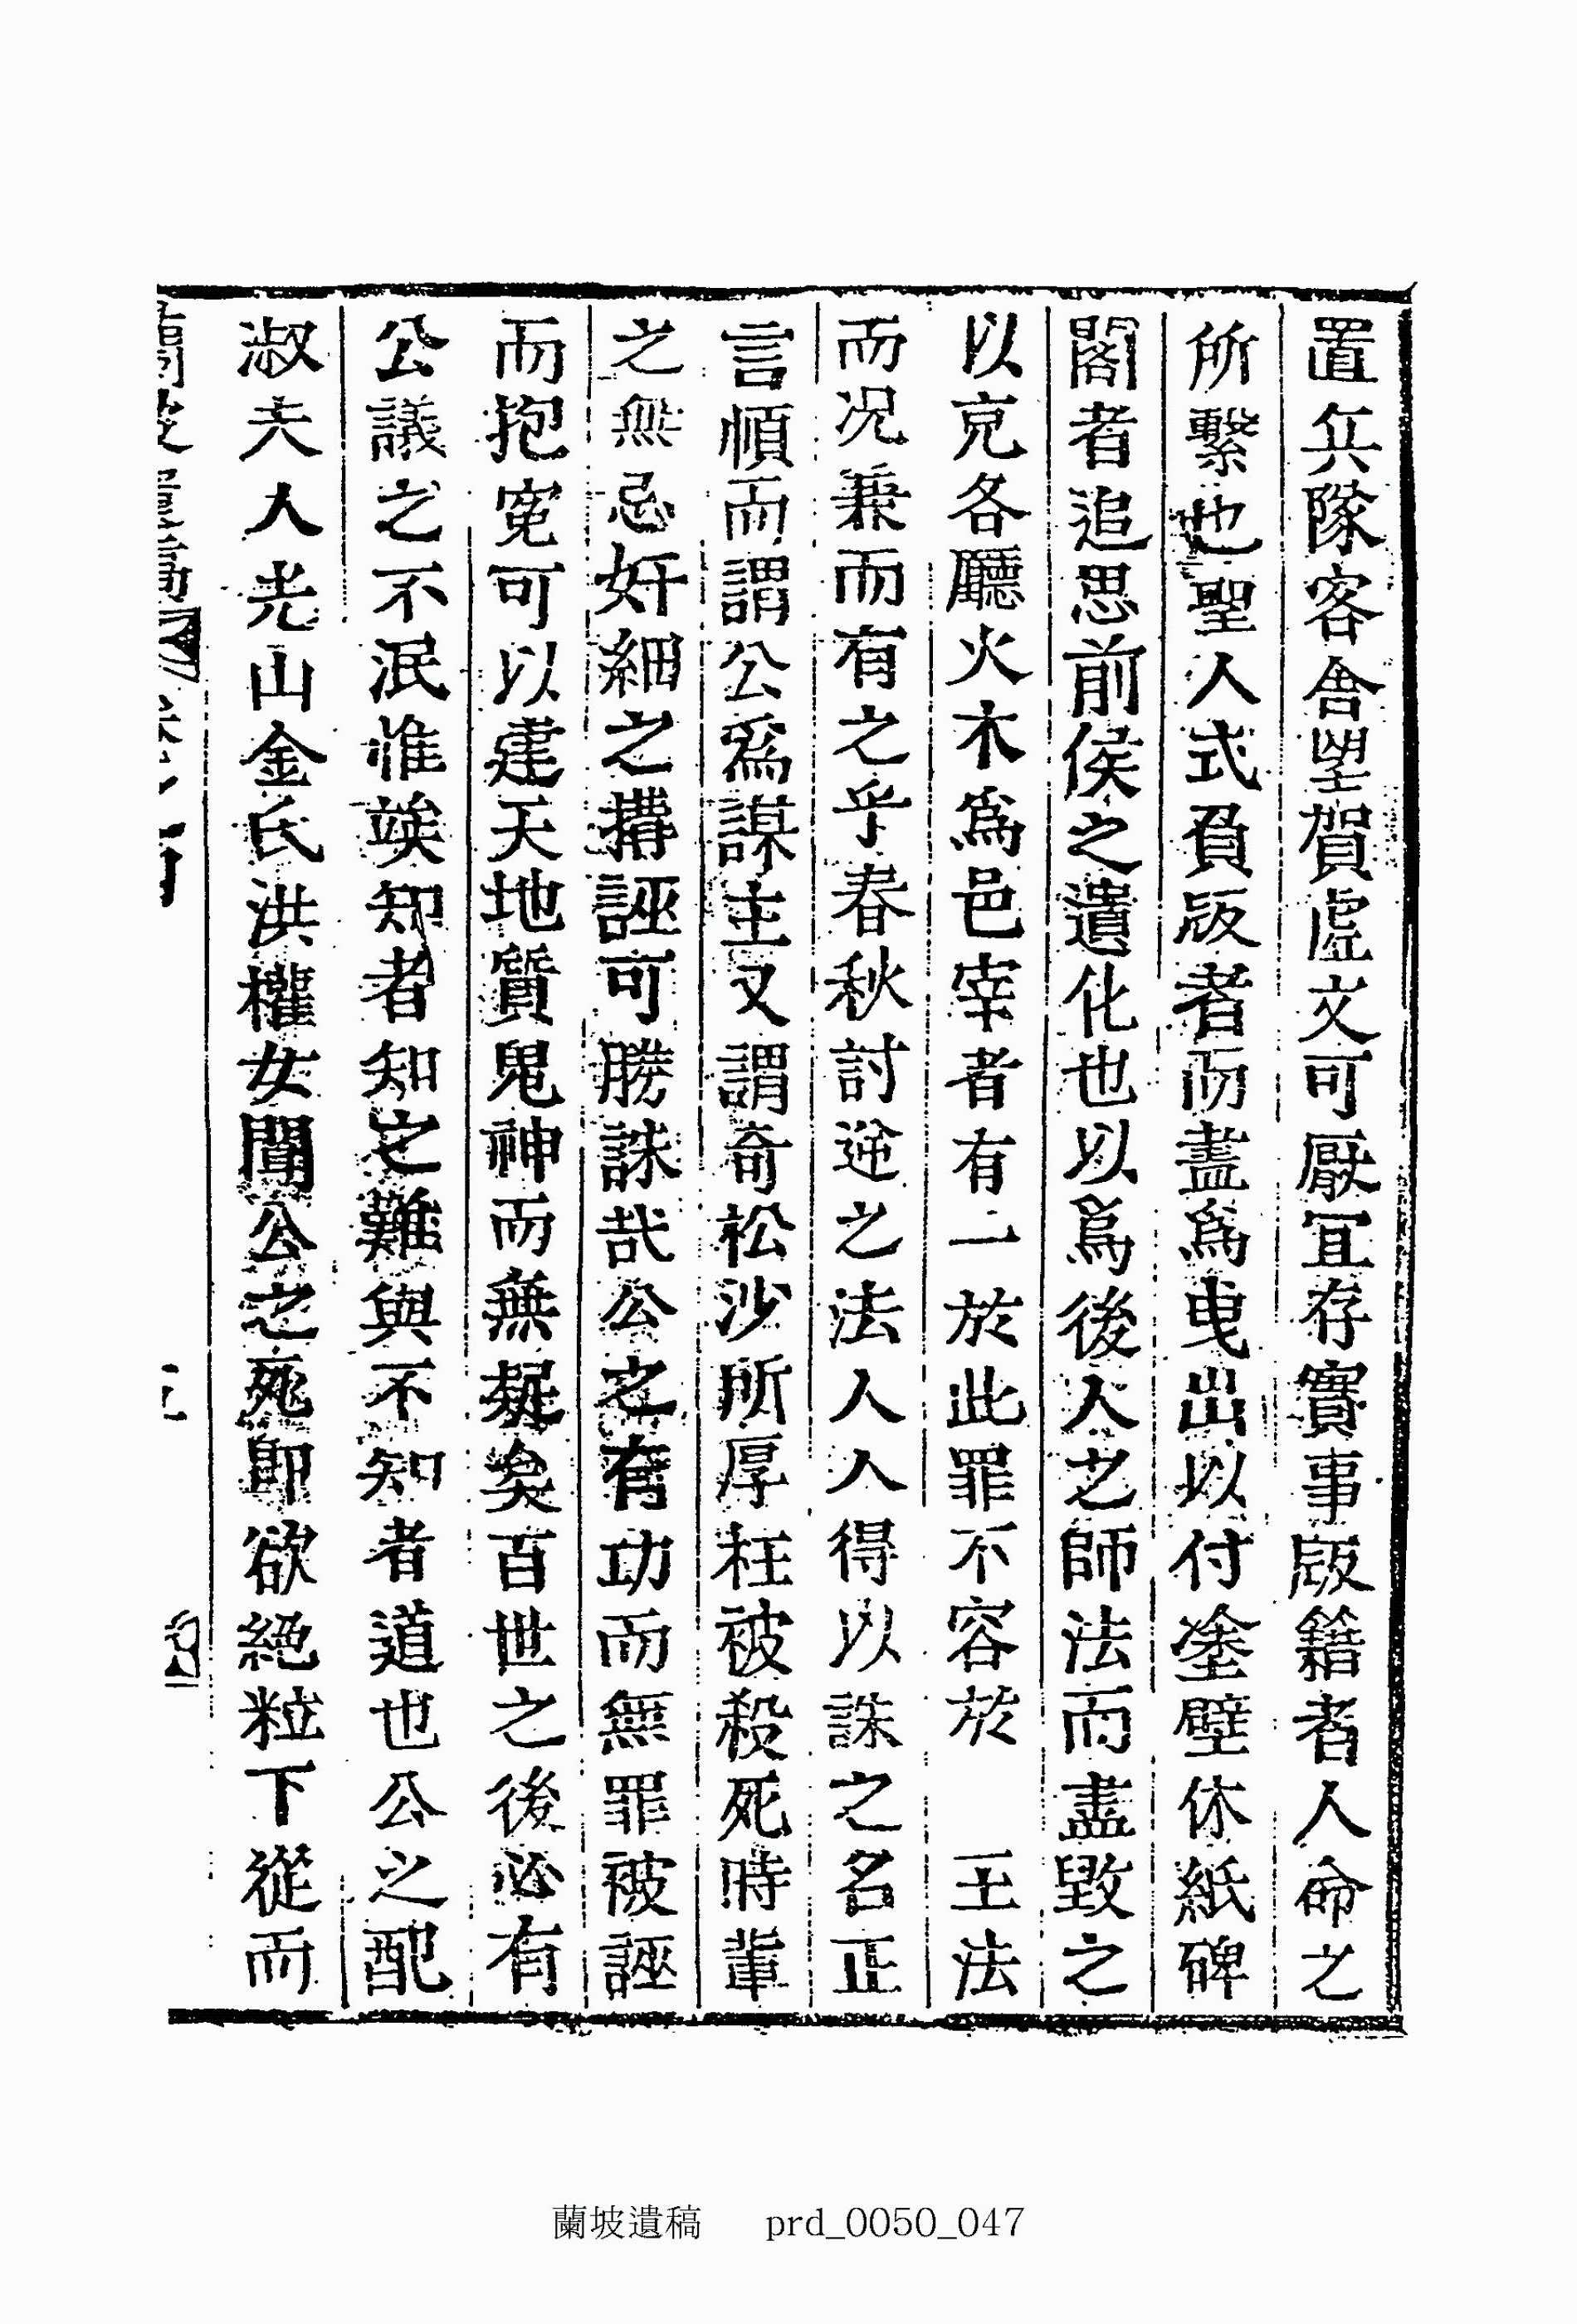 置兵隊客舍望賀虛文可厭冝存實事版籍者人命之
所繫也聖人式負版者而盡爲曳出以付塗壁休紙碑
閣者追思前侯之遺化也以爲後人之師法而盡毀之
以克各廳火木爲邑宰者有一於此罪不容於 王法
而况兼而有之乎春秋討逆之法人人得以誅之名正
言順而謂公爲謀主又謂奇松沙所厚枉被殺死時輩
之無忌奸細之搆誣可勝誅哉公之有功而無罪被誣
而抱寃可以建天地質鬼神而無疑矣百世之後必有
公議之不泯惟竢知者知之難與不知者道也公之配
淑夫人光山金氏洪權女聞公之死卽欲絕粒下從而
蘭坡遺稿 prd_0050_047